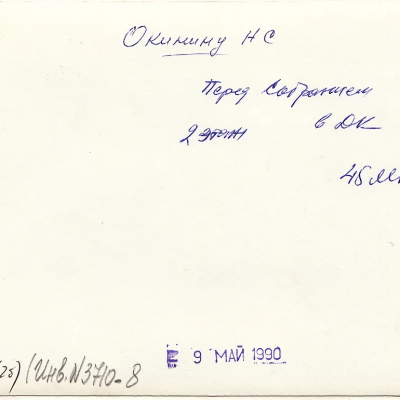 Окинину Н С
Перед собранием
в ДК
2 этаж
45 мл
25) (Инв. N 3710-8
9 МАЙ 1990